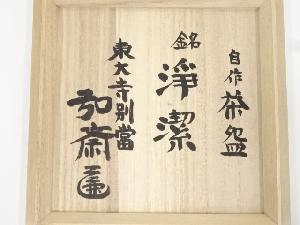 自作 茶盌
銘 淨潔
東大寺別當
弘斎